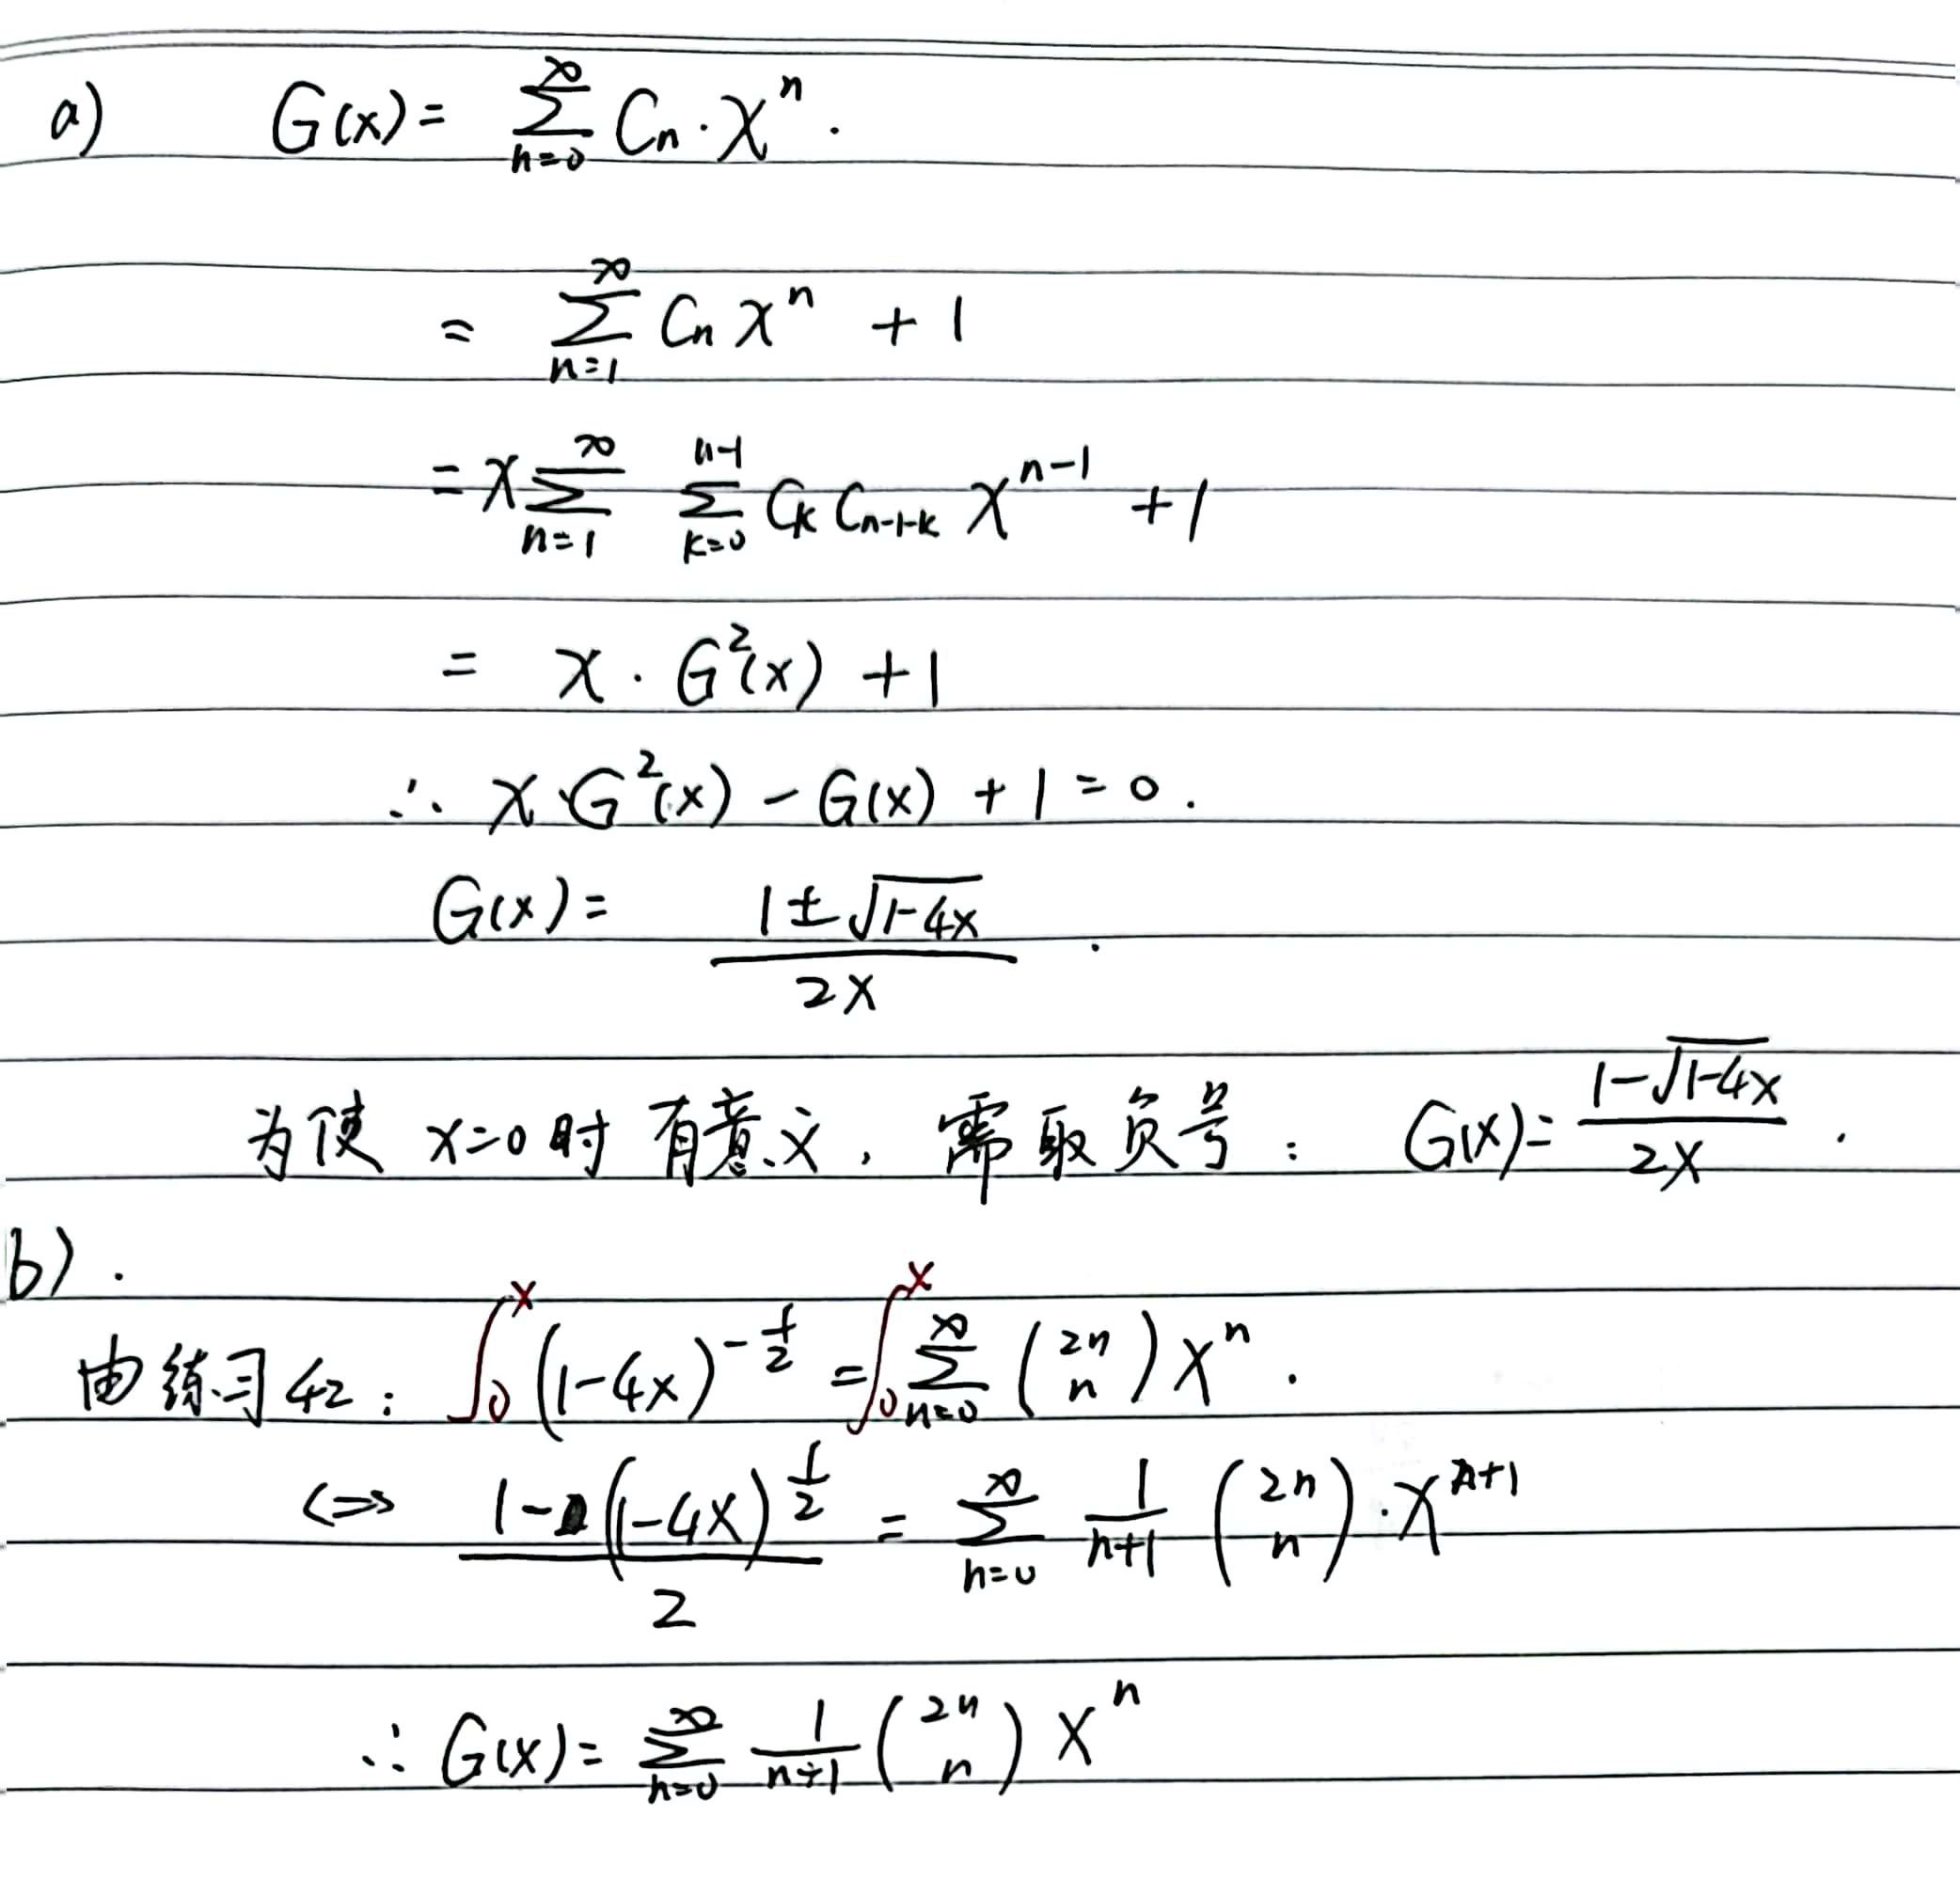 a) G(x) = ∑_{n=0}^{∞} Cn · x^n .
= ∑_{n=1}^{∞} Cn x^n + 1
= x ∑_{n=1}^{∞} ∑_{k=0}^{n-1} Ck C_{n-1-k} x^{n-1} + 1
= x · G²(x) + 1
∴ x·G²(x) - G(x) + 1 = 0 .
G(x) = (1 ± √(1-4x)) / 2x .
为使 x=0 时 有意义, 需取负号 : G(x) = (1-√(1-4x)) / 2x .
b) .
由练习42 : ∫_0^x (1-4x)^{-1/2} = ∫_0^x ∑_{n=0}^{∞} (2n n) x^n .
<=> (1-(1-4x)^{1/2}) / 2 = ∑_{n=0}^{∞} 1/(n+1) (2n n) · x^{n+1}
∴ G(x) = ∑_{n=0}^{∞} 1/(n+1) (2n n) x^n